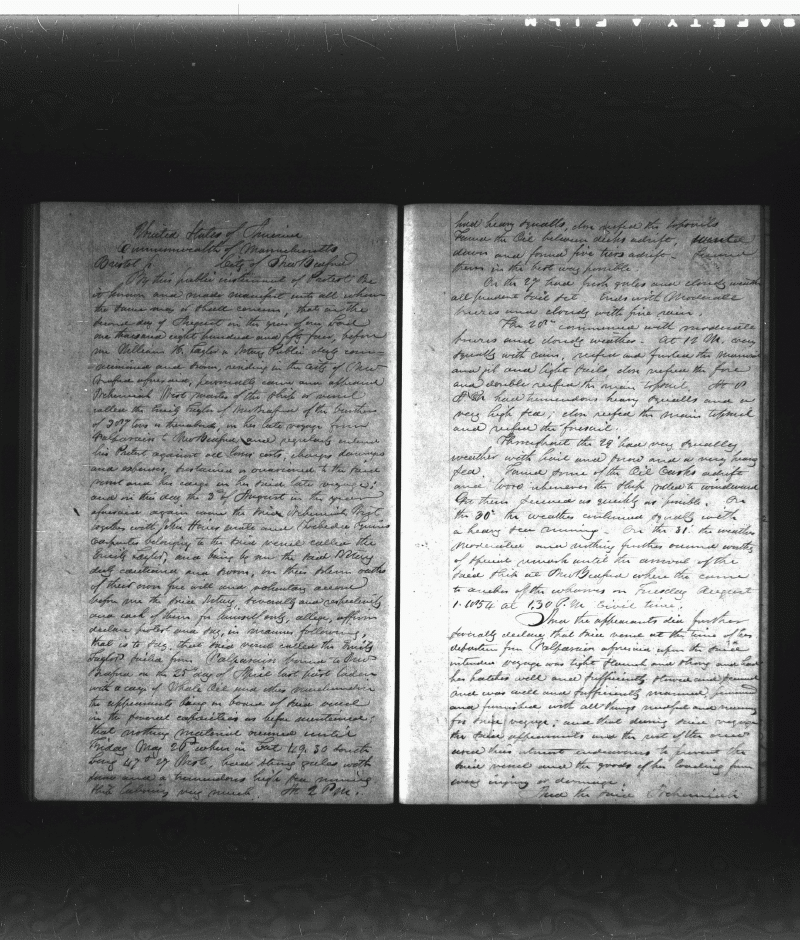 SAFETY A FILM
United States of America
Commonwealth of Massachusetts
Bristol ss. City of New Bedford
By this public instrument of Protest Be
it known and made manifest unto all whom
the same may or shall concern, that on the
second day of August in the year of our Lord
one thousand eight hundred and fifty four, before
me William H. Taylor a Notary Public duly comm-
issioned and sworn, residing in the City of New
Bedford aforesaid, personally came and appeared
Nehemiah West master of the ship or vessel
called the Emily Taylor of New Bedford of the burthen
of 307 tons or thereabout, in her late voyage from
Valparaiso to New Bedford and regularly entered
his Protest against all losses costs, charges damages
and expenses, sustained or occasioned to the said
vessel and his cargo in his said late voyage;
and on this day the 3d of August in the year
aforesaid again came the said Nehemiah West
together with John mate and
carpenter belonging to the said vessel called the
Emily Taylor, and being by me the said Notary
duly cautioned and sworn, on their solemn oaths
of their own free will and voluntary accord
before me the said Notary, severally and respectively
and each of them for himself only, allege, affirm
declare protest and say, in manner following;
that is to say, that said vessel called the Emily
Taylor sailed from Valparaiso bound to New
Bedford on the 25 day of April last past laden
with a cargo of Whale Oil and other merchandise
the appearants being on board of said vessel
in the several capacities as before mentioned;
that nothing material occurred until
Friday May 26th when in Lat 49.30 South
Long 47° 27 West, had strong gales with
and a tremendous high sea running
Ship laboring very much. At 2 P.M.
had heavy squalls, close reefed the topsails
Found the Oil between decks adrift,
down and found five tiers adrift. Secured
them in the best way possible.
On the 27 had fresh gales and cloudy weather
all prudent sail set. Ends with Moderate
breezes and cloudy with fine rain.
The 28th commenced with moderate
breezes and cloudy weather. At 10 M. very
squally with rain, reefed and furled the mainsail
and jib and light sails, close reefed the fore
and double reefed the main topsail. At 8
P.M. had tremendous heavy squalls and a
very high sea; close reefed the main topsail
and reefed the foresail.
Throughout the 29 had very squally
weather with hail and snow and a very heavy
sea. Found some of the Oil Casks adrift
and whenever the ship rolled to windward
Got them secured as quickly as possible. On
the 30th the weather continued squally with
a heavy sea running. On the 31st the weather
moderated and nothing further occurred worthy
of special remark until the arrival of the
said ship at New Bedford where she came
to anchor off the wharves on Tuesday August
1. 1854 at 1.30 P.M. Civil time.
And the appearants did further
severally declare that said vessel at the time of her
departure from Valparaiso aforesaid upon the said
intended voyage was tight staunch and strong and had
her hatches well and sufficiently stowed and secured
and was well and sufficiently manned,
and furnished with all things needful and necessary
for said voyage; and that during said voyage
the said appearants and the rest of the crew
used their utmost endeavours to prevent the
said vessel and the goods of her loading from
every injury or damage.
And the said Nehemiah